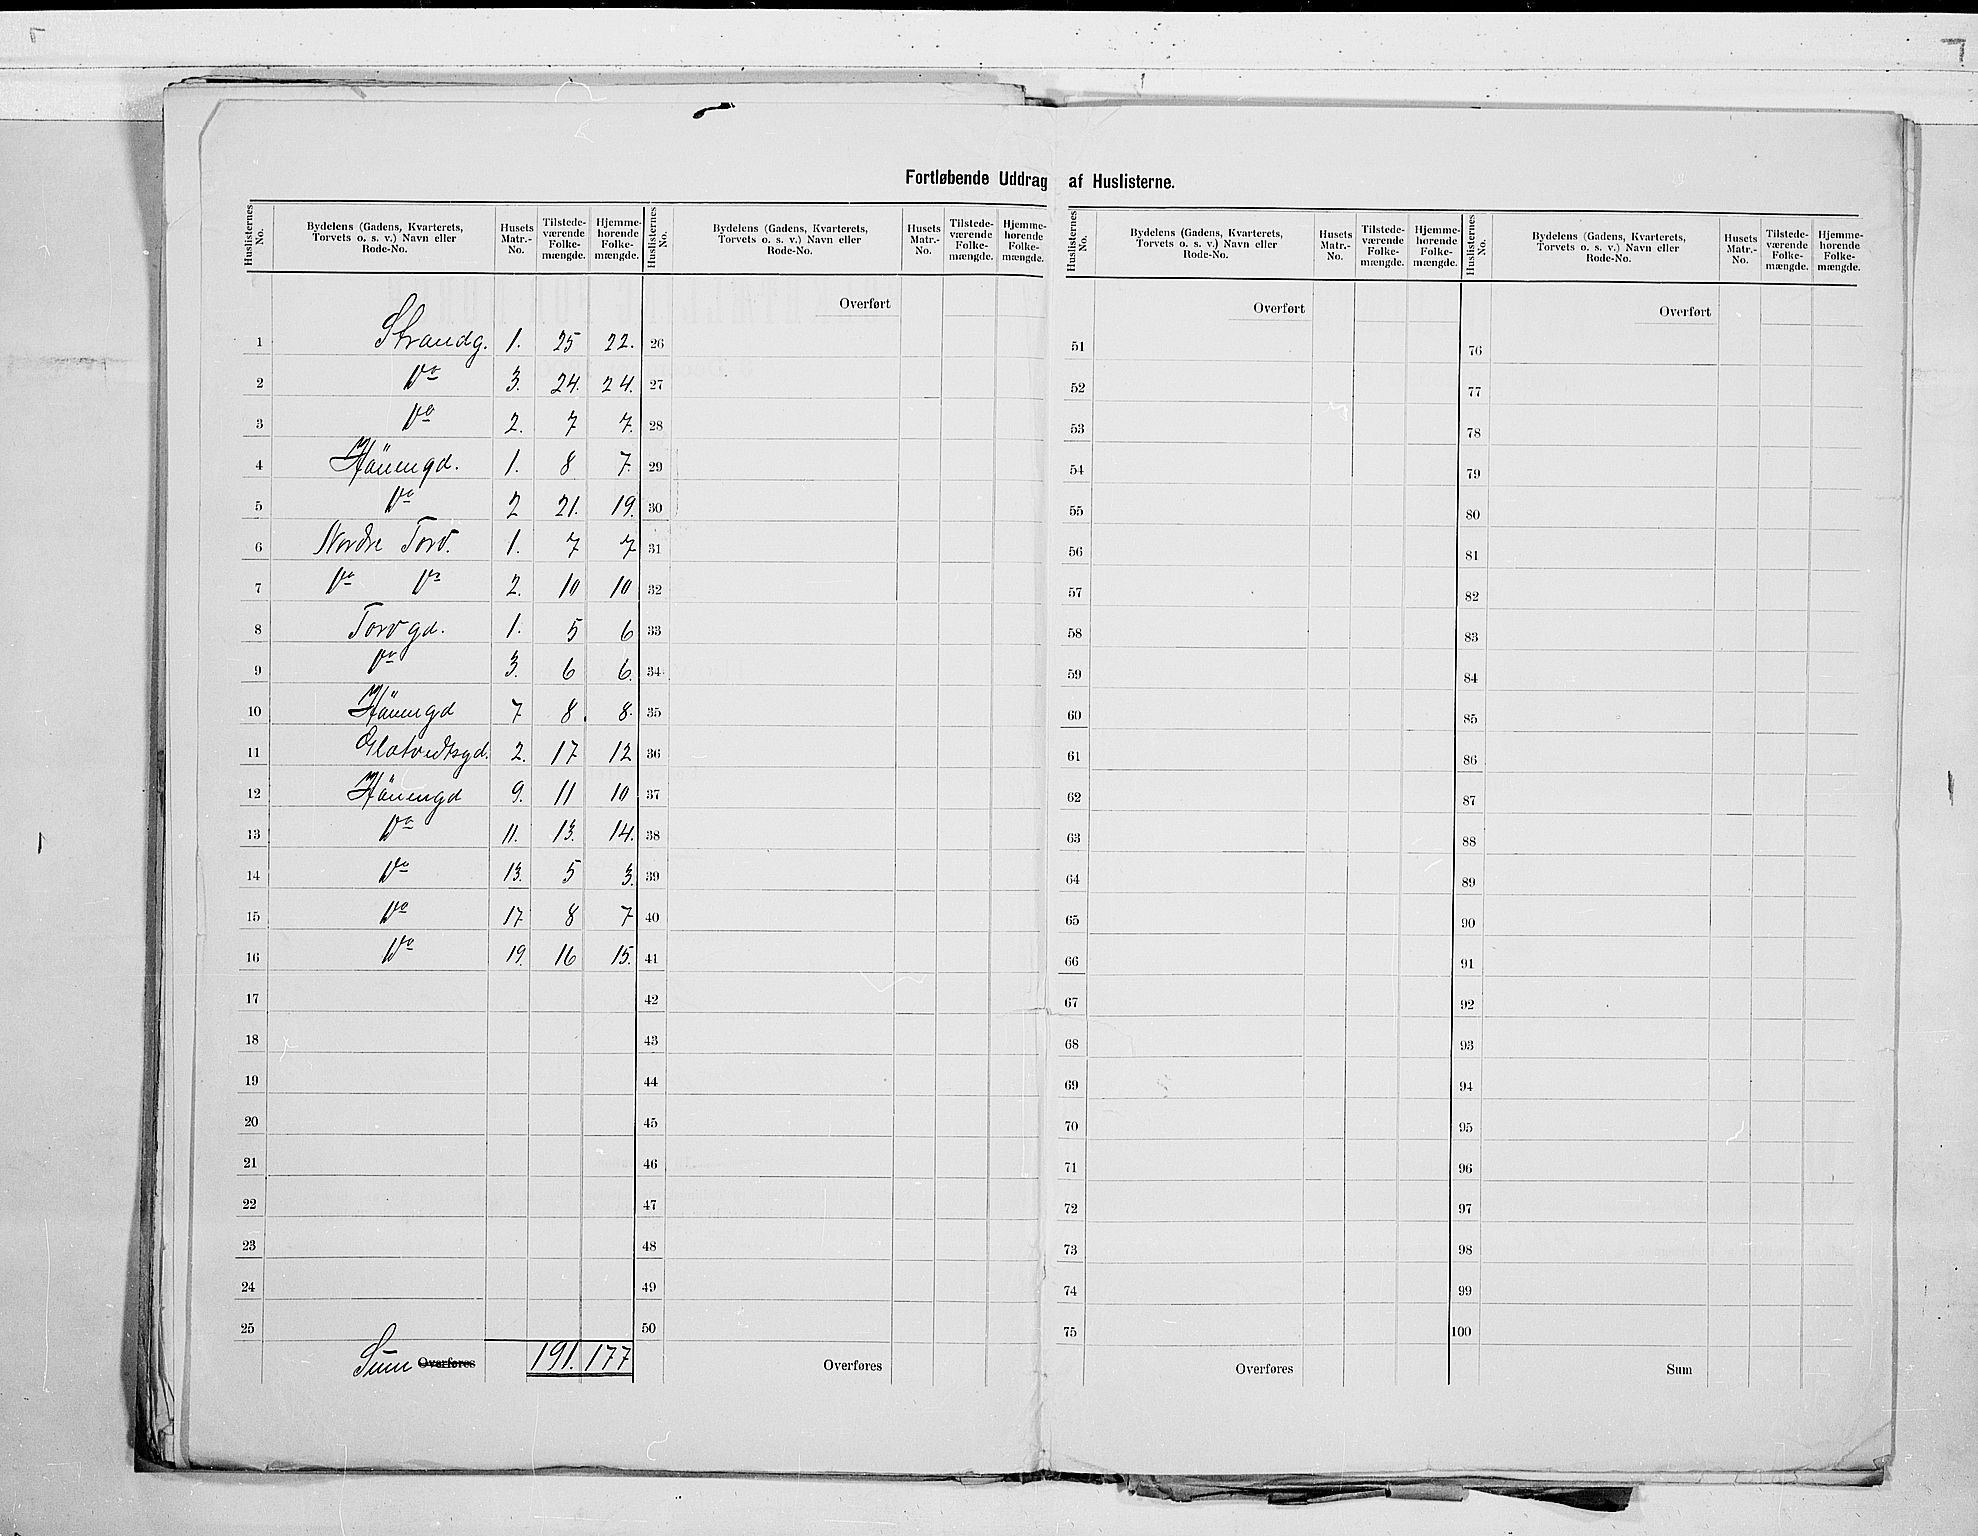 Fortløbende Uddrag af Huslisterne.
Huslisternes No. | Bydelens (Gadens, Kvarterets, Torvets o. s. v.) Navn eller Rode-No. | Husets Matr.-No. | Tilstedeværende Folkemængde. | Hjemmehørende Folkemængde.
1 Strandg. 1. 25 22.
2 Do 3. 24. 24.
3 Do 2. 7 7.
4 1. 8 7.
5 Do 2 21. 19.
6 Nordre Torv. 1. 7 7
7 Do Do 2. 10 10
8 Torvgd. 1. 5 6
9 Do 3. 6 6.
10 7 8. 8.
11 2. 17 12
12 9. 11 10
13 Do 11. 13. 14.
14 Do 13. 5 3.
15 Do 17 8 7
16 Do 19. 16 15.
17
18
19
20
21
22
23
24
25
Sum Overføres 191. 177
Huslisternes No. | Bydelens (Gadens, Kvarterets, Torvets o. s. v.) Navn eller Rode-No. | Husets Matr.-No. | Tilstedeværende Folkemængde. | Hjemmehørende Folkemængde.
Overført
26
27
28
29
30
31
32
33
34
35
36
37
38
39
40
41
42
43
44
45
46
47
48
49
50
Overføres
Huslisternes No. | Bydelens (Gadens, Kvarterets, Torvets o. s. v.) Navn eller Rode-No. | Husets Matr.-No. | Tilstedeværende Folkemængde. | Hjemmehørende Folkemængde.
Overført
51
52
53
54
55
56
57
58
59
60
61
62
63
64
65
66
67
68
69
70
71
72
73
74
75
Overføres
Huslisternes No. | Bydelens (Gadens, Kvarterets, Torvets o. s. v.) Navn eller Rode-No. | Husets Matr.-No. | Tilstedeværende Folkemængde. | Hjemmehørende Folkemængde.
Overført
76
77
78
79
80
81
82
83
84
85
86
87
88
89
90
91
92
93
94
95
96
97
98
99
100
Sum